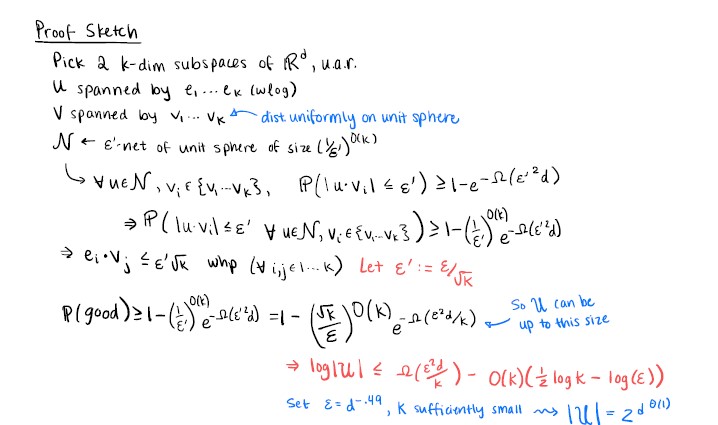 Proof Sketch
Pick 2 k-dim subspaces of ℝ^d, u.a.r.
U spanned by e₁ ... e_k (wlog)
V spanned by v₁ ... v_k ← dist. uniformly on unit sphere
N ← ε'-net of unit sphere of size (1/ε')^{O(k)}
↳ ∀ u∈N, v_i ∈ {v₁...v_k}, ℙ(|u·v_i| ≤ ε') ≥ 1-e^{-Ω(ε'²d)}
⇒ ℙ(|u·v_i| ≤ ε' ∀ u∈N, v_i∈{v₁...v_k}) ≥ 1-(1/ε')^{O(k)} e^{-Ω(ε'²d)}
⇒ e_i·v_j ≤ ε'√k whp (∀ i,j ∈ 1...k) Let ε' := ε/√k
ℙ(good) ≥ 1-(1/ε')^{O(k)} e^{-Ω(ε'²d)} = 1 - (√k/ε)^{O(k)} e^{-Ω(ε²d/k)} ← So U can be up to this size
⇒ log|U| ≤ Ω(ε²d/k) - O(k)(½ log k - log(ε))
Set ε = d^{-.49}, k sufficiently small ⇝ |U| = 2^{d^{Θ(1)}}